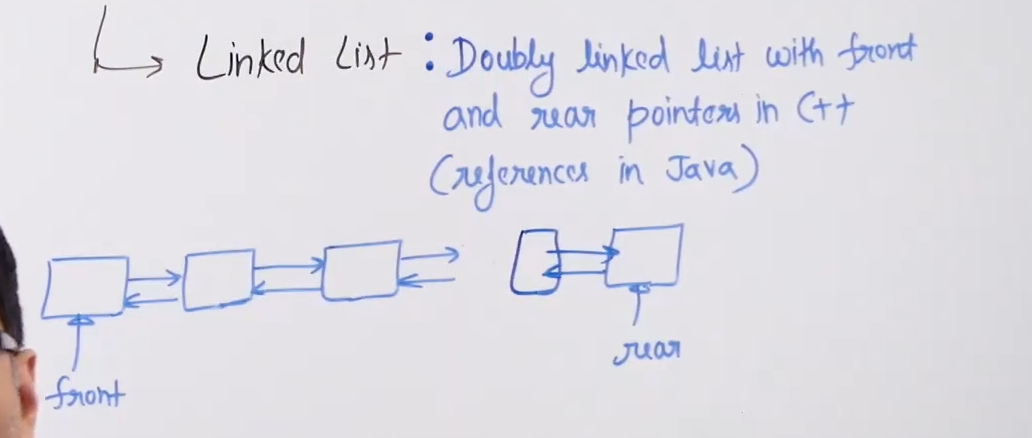 Linked List : Doubly linked list with front
and rear pointers in C++
(references in Java)
front
rear